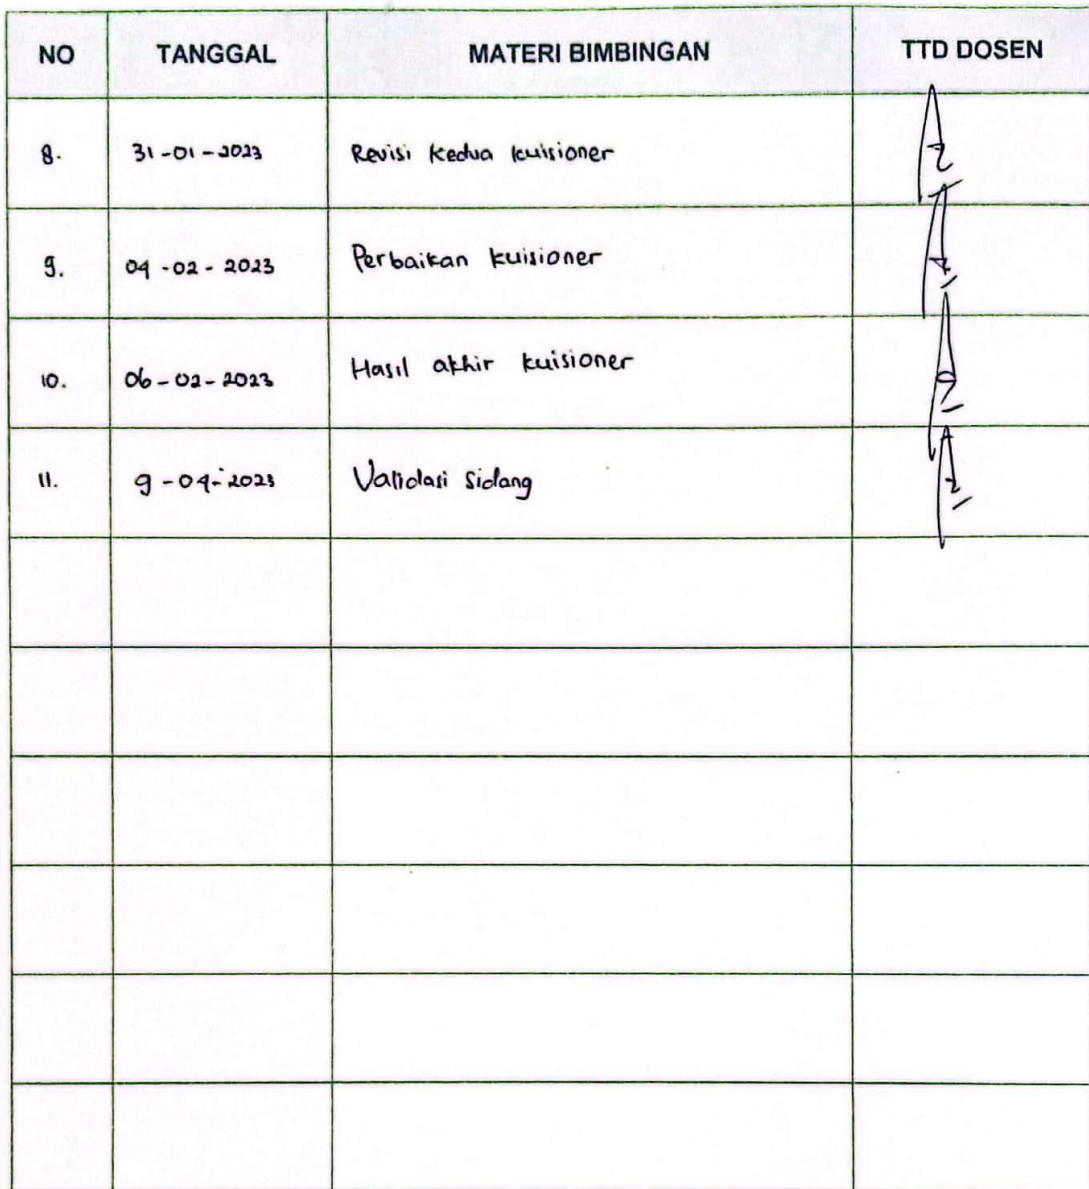 NO TANGGAL MATERI BIMBINGAN TTD DOSEN
8. 31-01-2023 Revisi kedua kuisioner
9. 04-02-2023 Perbaikan kuisioner
10. 06-02-2023 Hasil akhir kuisioner
11. 9-04-2023 Validasi Sidang